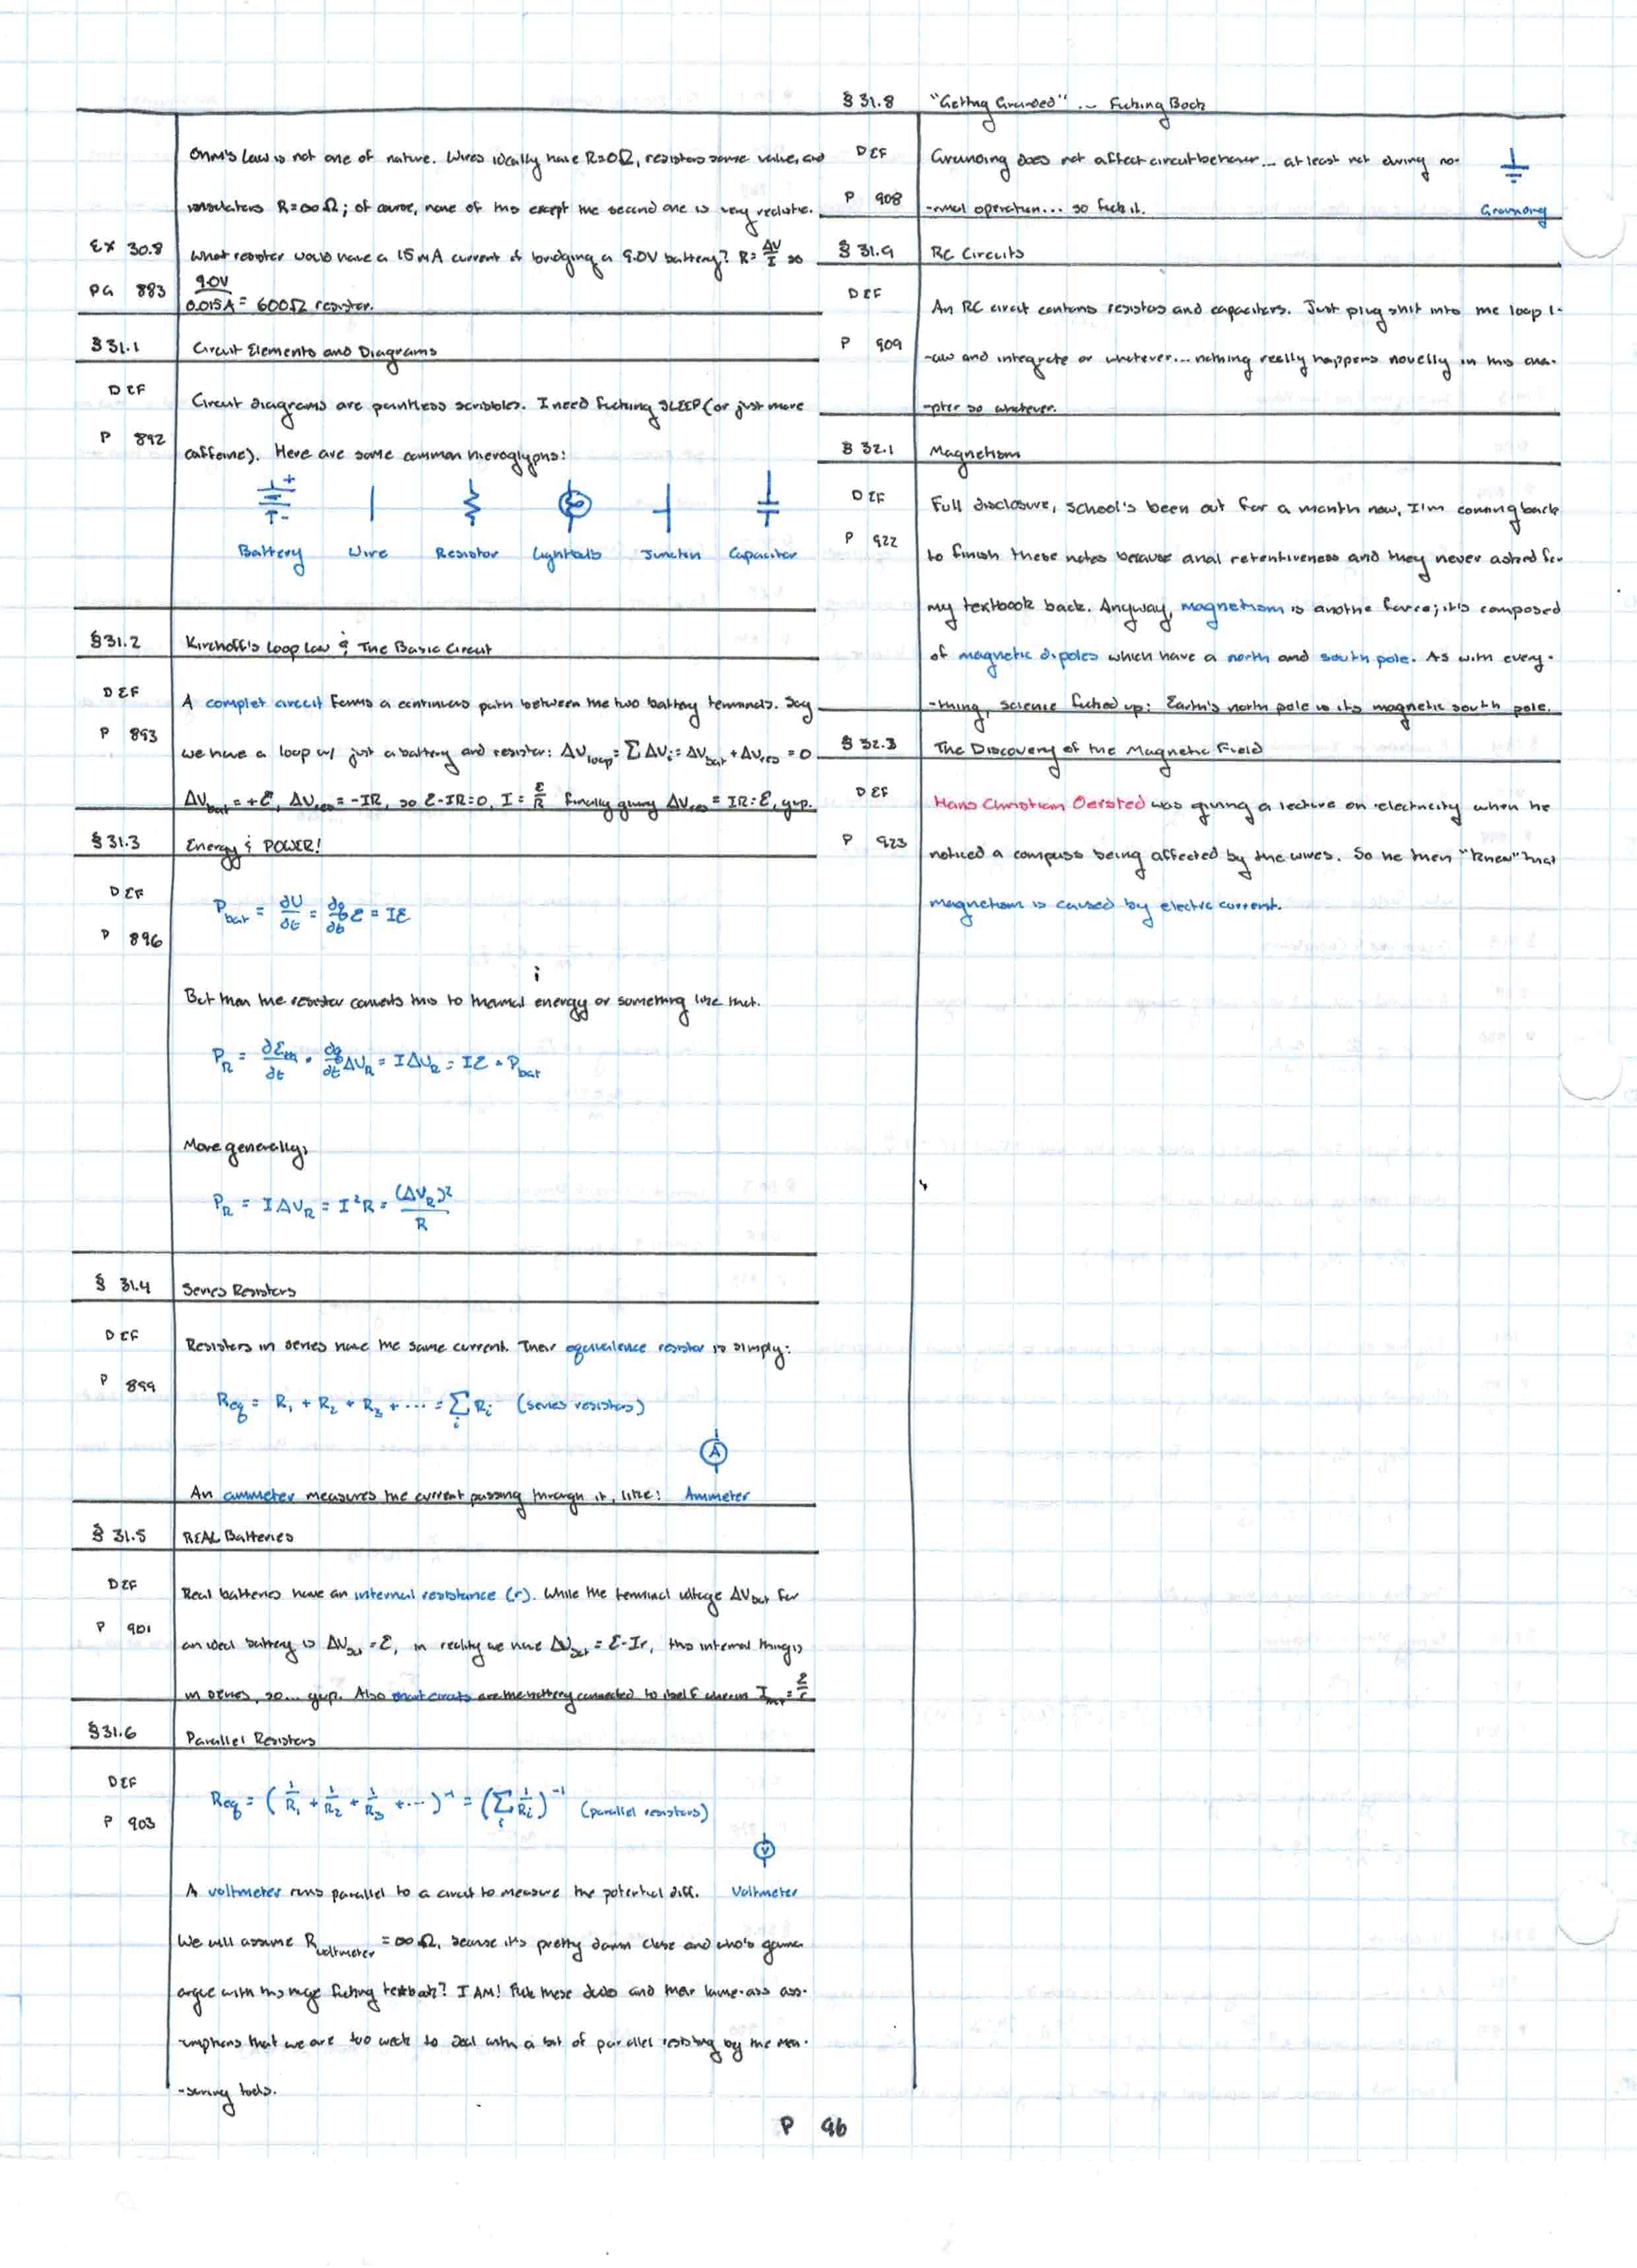 Ohm's Law is not one of nature. Wires ideally have R=0Ω, resistors some value, and
insulators R=∞Ω; of course, none of this except the second one is very realistic.
EX 30.8
What resistor would have a 15mA current if bridging a 9.0V battery? R=ΔV/I so
PG 883
9.0V/0.015A = 600Ω resistor.
§ 31.1 Circuit Elements and Diagrams
DEF
P 892
Circuit diagrams are pointless scribbles. I need fucking SLEEP (or just more
caffeine). Here are some common hieroglyphs:
+
-
Battery Wire Resistor Lightbulb Junction Capacitor
§ 31.2 Kirchoff's Loop Law & The Basic Circuit
DEF
P 893
A complet circuit forms a continuous path between the two battery terminals. Say
we have a loop w/ just a battery and resistor: ΔV_loop = ΣΔV_i = ΔV_bat + ΔV_res = 0
ΔV_bat = +ℰ, ΔV_res = -IR, so ℰ-IR=0, I=ℰ/R finally giving ΔV_res = IR=ℰ, yup.
§ 31.3 Energy & POWER!
DEF
P 896
P_bat = ∂U/∂t = ∂q/∂t ℰ = Iℰ
But then the resistor converts this to thermal energy or something like that.
P_R = ∂E_th/∂t = ∂q/∂t ΔV_R = IΔV_R = Iℰ = P_bat
More generally,
P_R = IΔV_R = I²R = (ΔV_R)²/R
§ 31.4 Series Resistors
DEF
P 899
Resisters in series have the same current. Their equivalence resistor is simply:
Req = R₁ + R₂ + R₃ + ... = Σ_i R_i (series resistors)
A
An ammeter measures the current passing through it, like: Ammeter
§ 31.5 REAL Batteries
DEF
P 901
Real batteries have an internal resistance (r). While the terminal voltage ΔV_bat for
an ideal battery is ΔV_bat = ℰ, in reality we have ΔV_bat = ℰ-Ir, this internal thing is
in series, so... yup. Also short circuits are the battery connected to itself wherein I = ℰ/r
§ 31.6 Parallel Resistors
DEF
P 903
Req = (1/R₁ + 1/R₂ + 1/R₃ + ...)⁻¹ = (Σ_i 1/R_i)⁻¹ (parallel resistors)
V
A voltmeter runs parallel to a circuit to measure the potential diff. Voltmeter
We will assume R_voltmeter = ∞Ω, because it's pretty damn close and who's gonna
argue with this huge fucking textbook? I AM! Fuck these dudes and their lame-ass ass-
-umptions that we are too weak to deal with a bit of parallel resisting by the mea-
-suring tools.
§ 31.8 "Getting Grounded" ... Fucking Book
DEF
P 908
Grounding does not affect circuit behavior... at least not during no-
-rmal operation... so fuck it.
Grounding
§ 31.9 RC Circuits
DEF
P 909
An RC circuit contains resistors and capacitors. Just plug shit into the loop l-
-aw and integrate or whatever... nothing really happens novelly in this cha-
-pter so whatever.
§ 32.1 Magnetism
DEF
P 922
Full disclosure, school's been out for a month now, I'm coming back
to finish these notes because anal retentiveness and they never asked for
my textbook back. Anyway, magnetism is anothe force; it's composed
of magnetic dipoles which have a north and south pole. As with every-
-thing, science fucked up: Earth's north pole is its magnetic south pole.
§ 32.3 The Discovery of the Magnetic Field
DEF
P 923
Hans Christian Oersted was giving a lecture on electricity when he
noticed a compass being affected by the wires. So he then "knew" that
magnetism is caused by electric current.
P 96